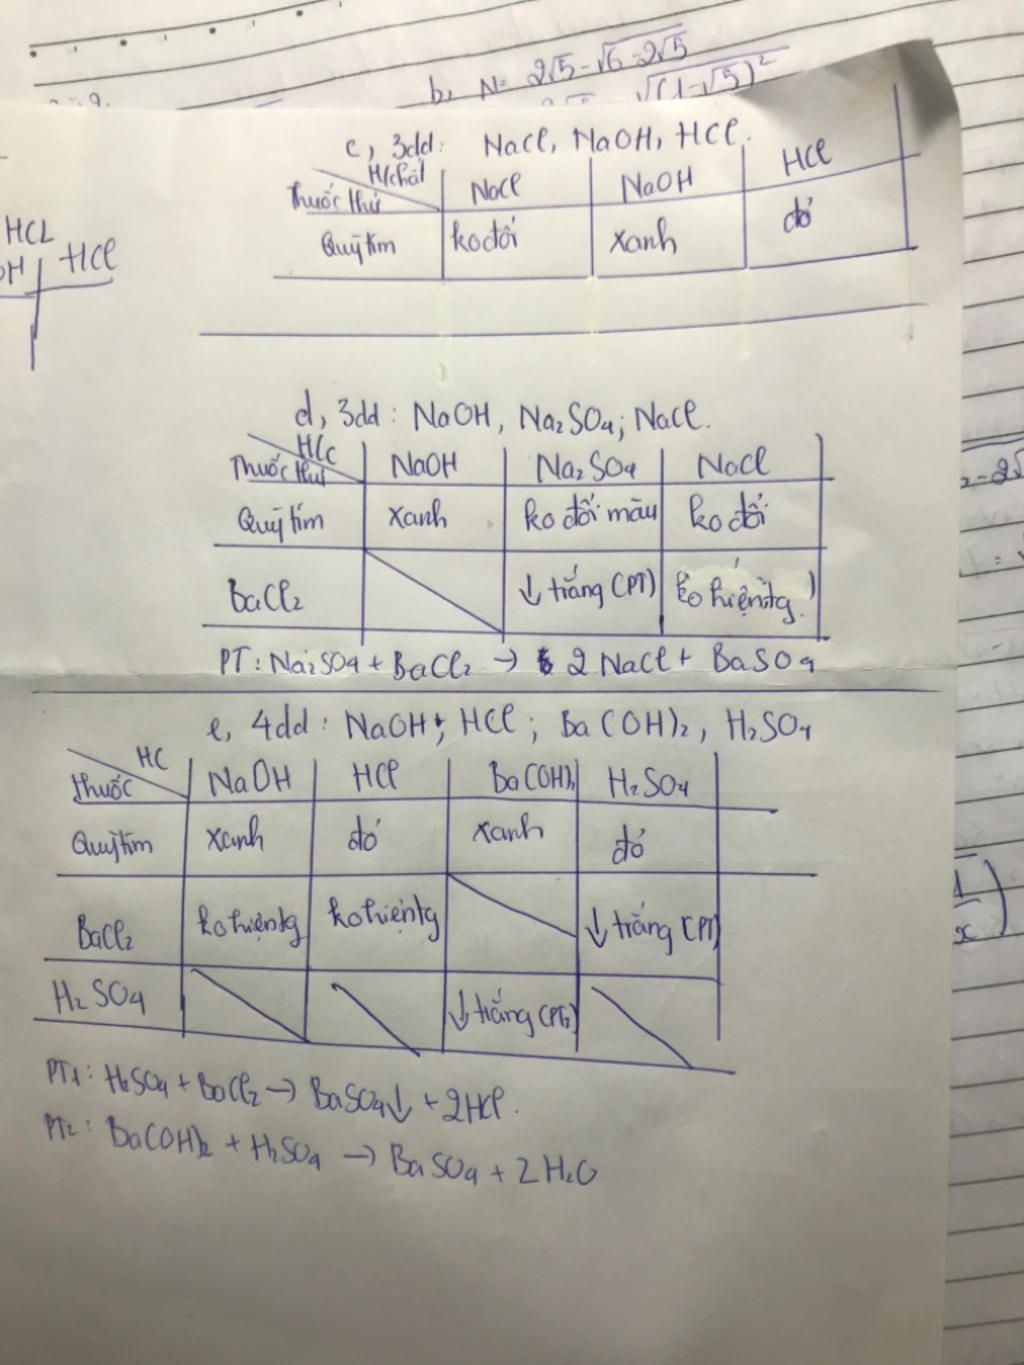 b, N= 2√5-√6-2√5
√(1-√5)²
c, 3dd: NaCl, NaOH, HCl.
H/chất
Thuốc thử NaCl NaOH HCl
Quỳ tím ko đổi xanh đỏ
HCL
OH HCl
d, 3dd: NaOH, Na₂SO₄; NaCl.
H/c
Thuốc thử NaOH Na₂SO₄ NaCl
Quỳ tím xanh ko đổi màu ko đổi
BaCl₂ ↓ trắng (PT) ko hiện tg
PT: Na₂SO₄ + BaCl₂ → 2 NaCl + BaSO₄
e, 4dd: NaOH; HCl; Ba(OH)₂, H₂SO₄
HC
thuốc NaOH HCl Ba(OH)₂ H₂SO₄
Quỳ tím xanh đỏ xanh đỏ
BaCl₂ ko hiện tg ko hiện tg ↓ trắng (PT)
H₂SO₄ ↓ trắng (PT₂)
PT1: H₂SO₄ + BaCl₂ → BaSO₄↓ + 2HCl.
PT₂: Ba(OH)₂ + H₂SO₄ → BaSO₄ + 2H₂O